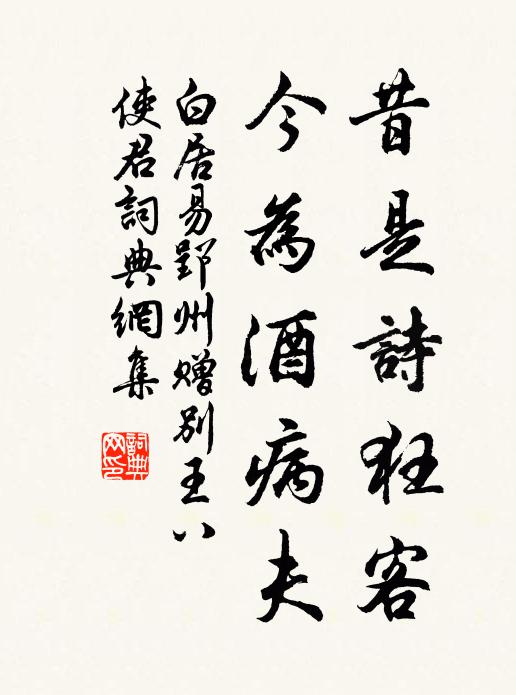 昔是詩狂客
今為酒病夫
白居易郢州贈別王八
使君詞典網集
詞典
网印